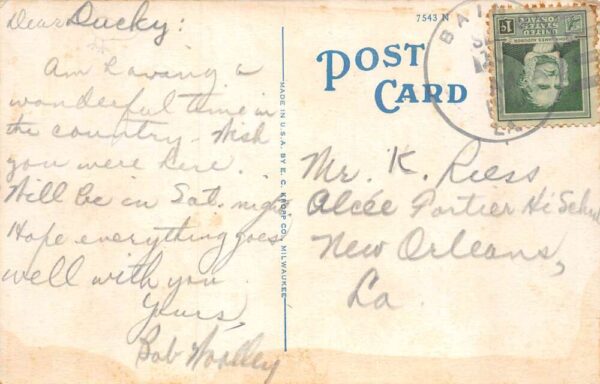 Dear Ducky:
Am having a
wonderful time in
the country. Wish
you were here.
Will be in Sat. night.
Hope everything goes
well with you
Yours,
Bob Woolley
7543 N
POST
CARD
MADE IN U.S.A. BY E. C. KROPP CO., MILWAUKEE
BA
LA
1¢
UNITED
STATES
POSTAGE
Mr. K. Riess
Alcée Fortier Hi School
New Orleans,
La.